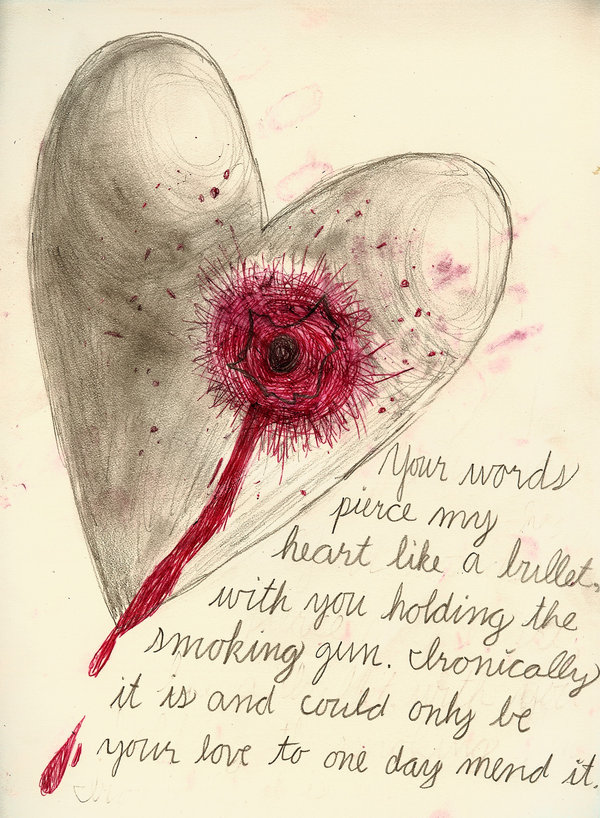 Your words
pierce my
heart like a bullet,
with you holding the
smoking gun. Ironically
it is and could only be
your love to one day mend it.